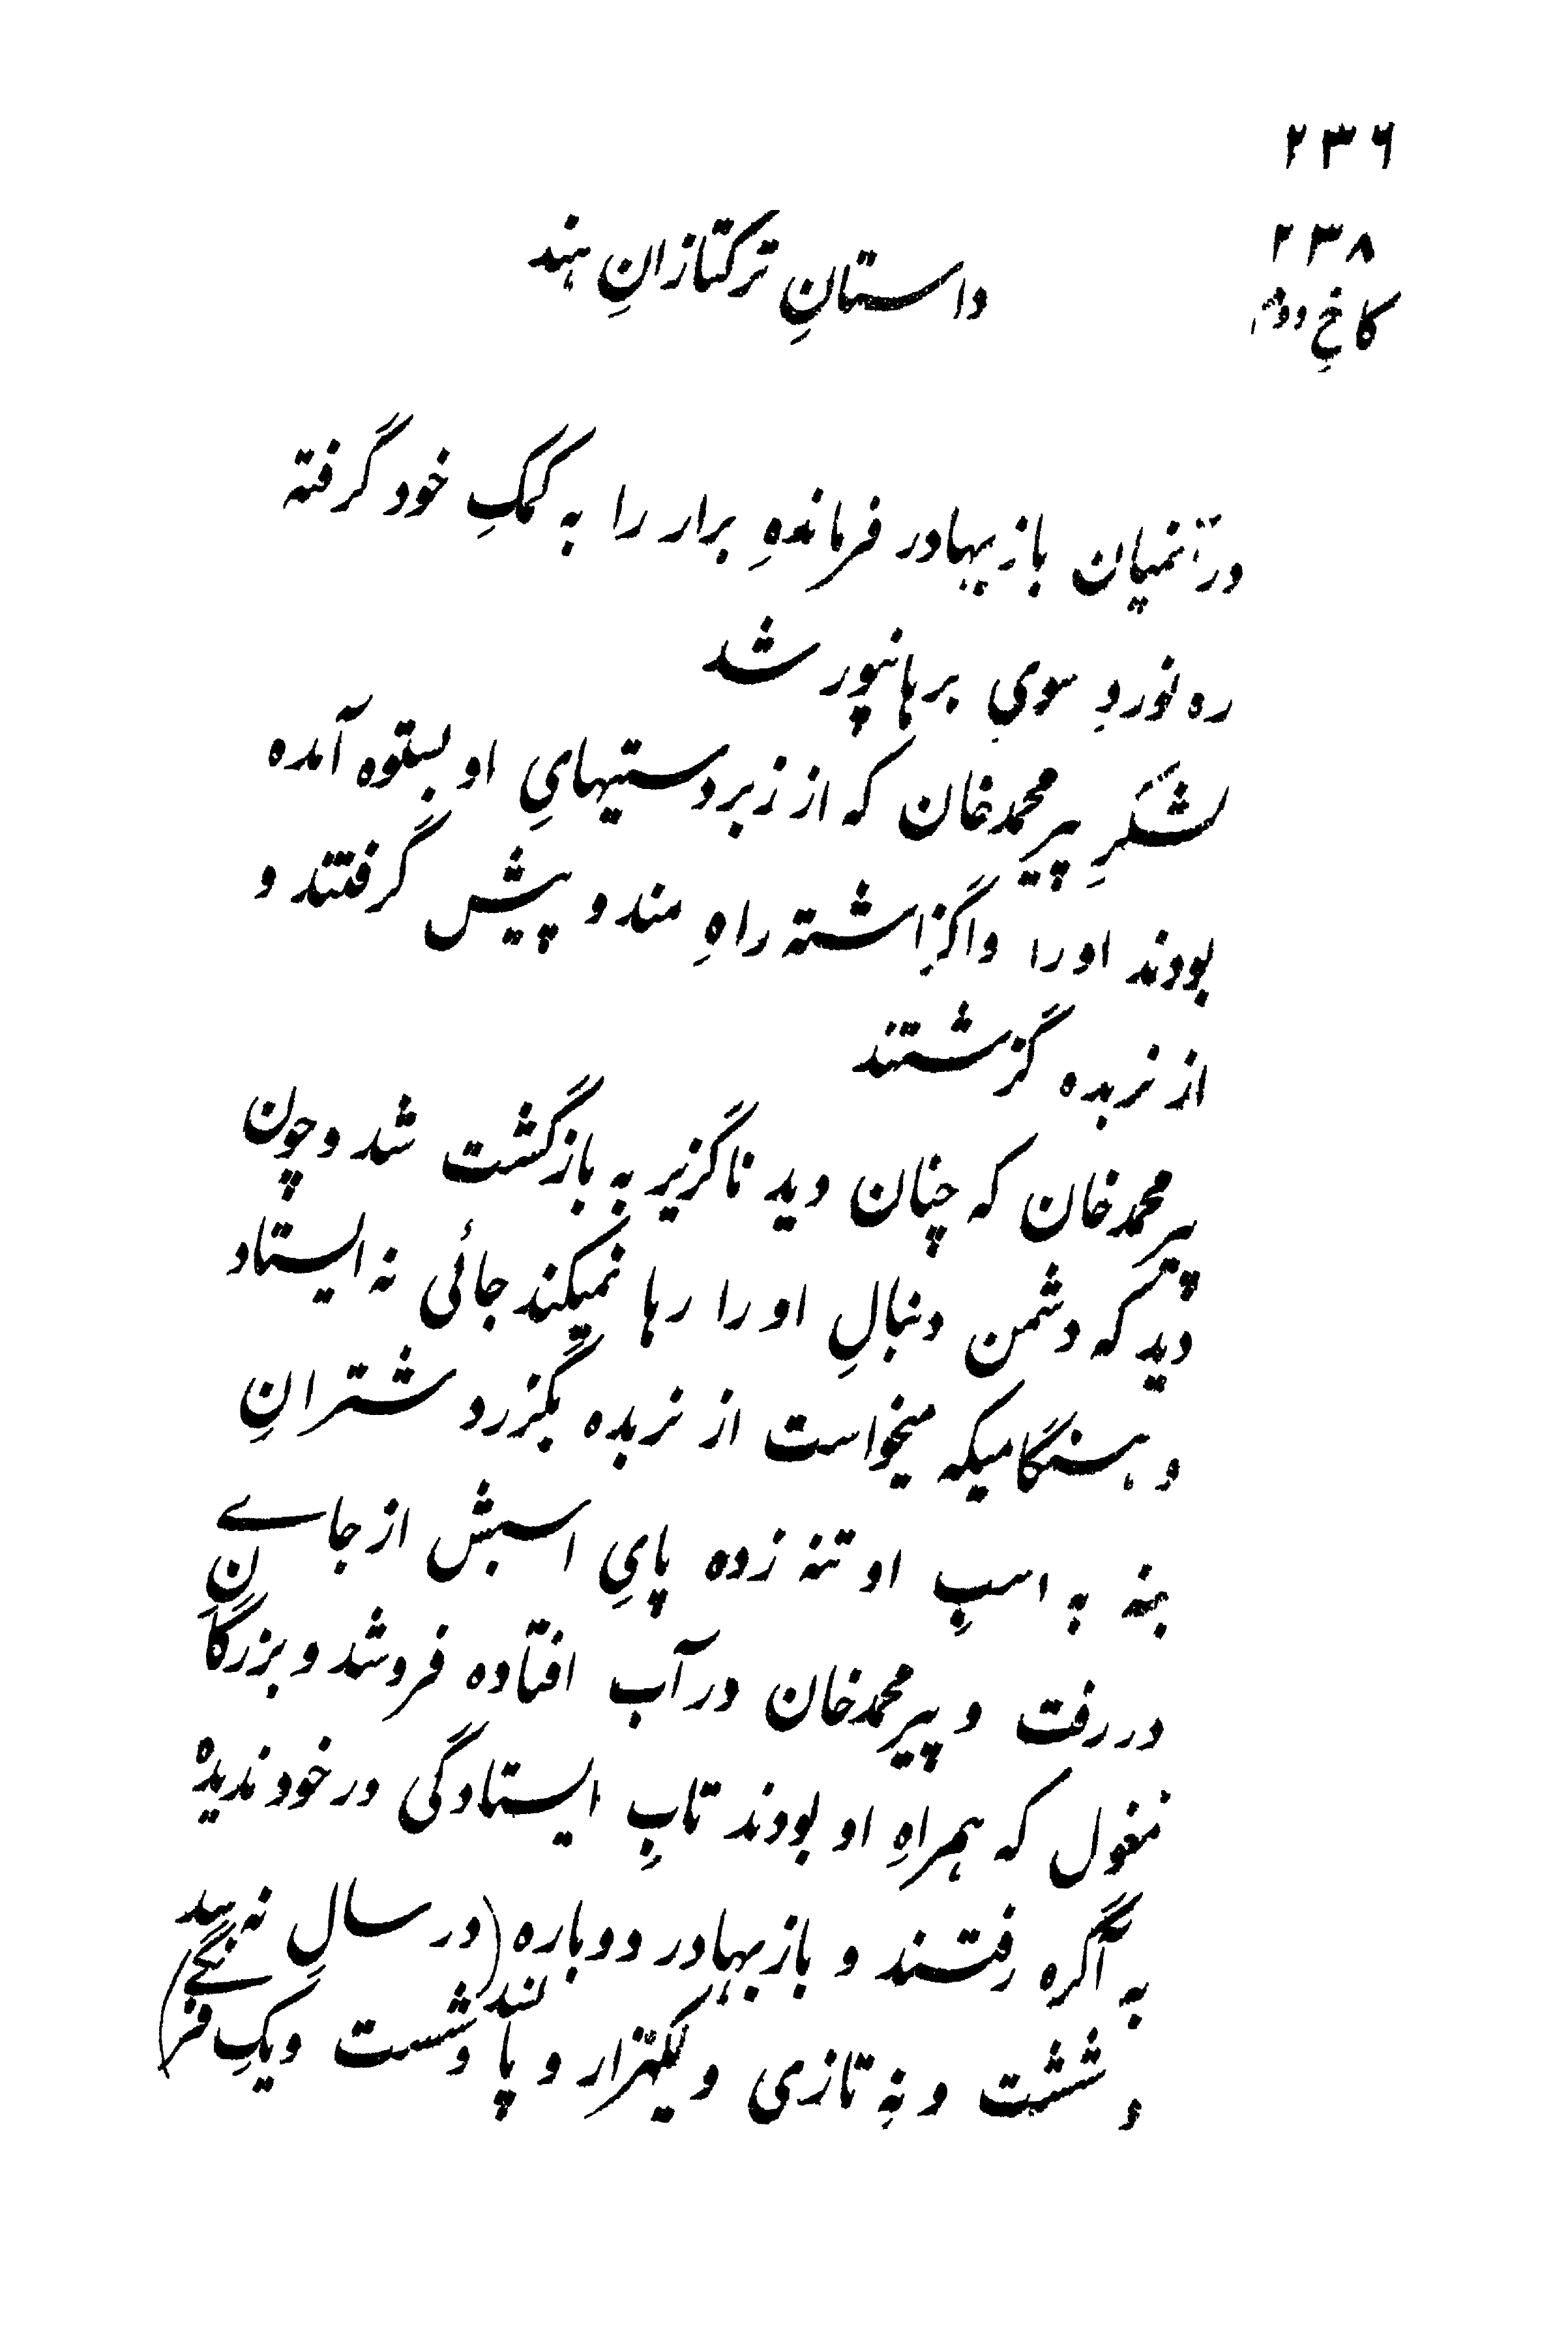 ۲۳۶
۲۳۸
کاخِ دوم
داستانِ ترکتازانِ هند
درآنمیان بازبهادر فرماندهِ برار را به کمکِ خود گرفته
ره نوردِ سویِ برهانپور شد
لشکرِ پیرمحمدخان که از زبردستیهایِ او بستوه آمده
بودند اورا واگزاشته راهِ مندو پیش گرفتند و
از نربده گزشتند
پیرمحمدخان که چنان دید ناگزیر به بازگشت شد و چون
دید که دشمن دنبالِ او را رها نمیکند جائی نه ایستاد
و هنگامیکه میخواست از نربده بگزرد شترانِ
بنه به اسپِ او تنه زده پایِ اسبش از جاے
دررفت و پیرمحمدخان درآب افتاده فروشد و بزرگانِ
مغول که همراهِ او بودند تابِ ایستادگی در خود ندیدہ
به آگره رفتند و بازبهادر دوباره (در سالِ نه سد
و شست و نه تازی و یکهزار و پانسد و شست و یکِ فرنگے)